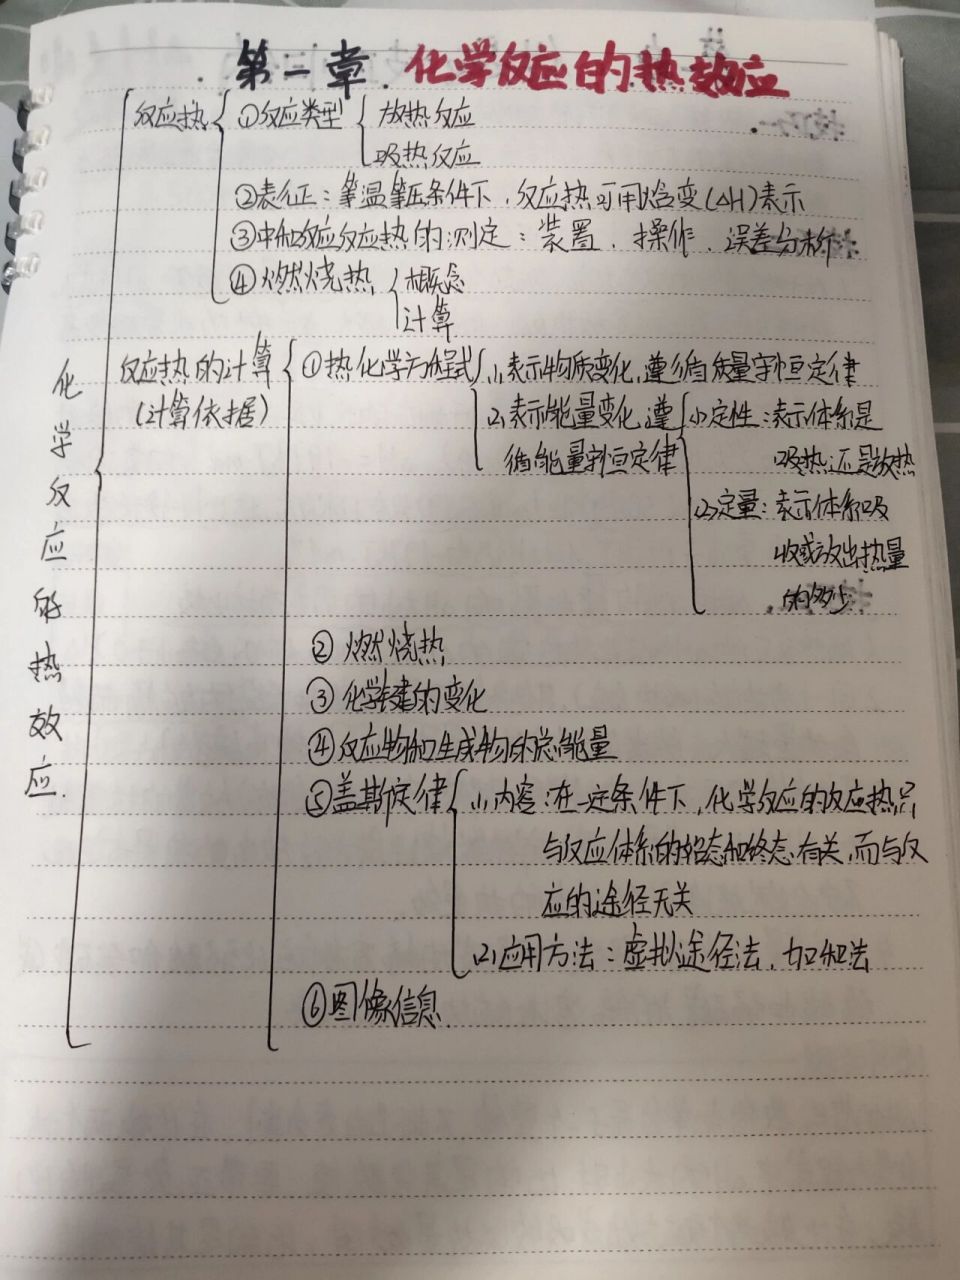 第一章 化学反应的热效应
反应热 ①反应类型 放热反应
吸热反应
②表征：等温等压条件下，反应热可用焓变(△H)表示
③中和反应反应热的测定：装置、操作、误差分析
④燃烧热 概念
计算
化学反应的热效应.
反应热的计算 ①热化学方程式 (1)表示物质变化，遵循质量守恒定律
(计算依据) (2)表示能量变化，遵 (1)定性：表示体系是
循能量守恒定律 吸热还是放热
(2)定量：表示体系吸
收或放出热量
的多少.
② 燃烧热
③ 化学键的变化
④ 反应物和生成物的总能量
⑤盖斯定律 (1)内容：在一定条件下，化学反应的反应热只
与反应体系的始态和终态有关，而与反
应的途径无关
(2)应用方法：虚拟途径法、加和法
⑥图像信息.